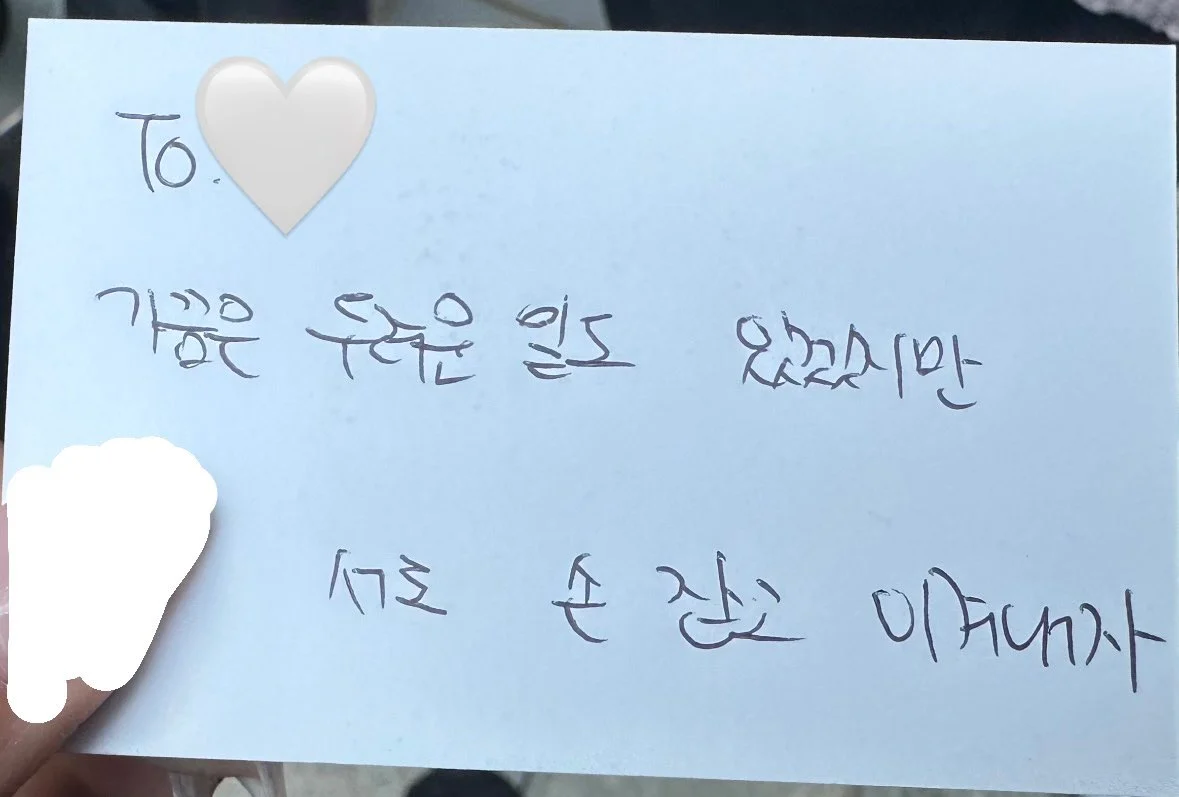 To.
가끔은 두려운 일도 있겠지만
서로 손 잡고 이겨내자